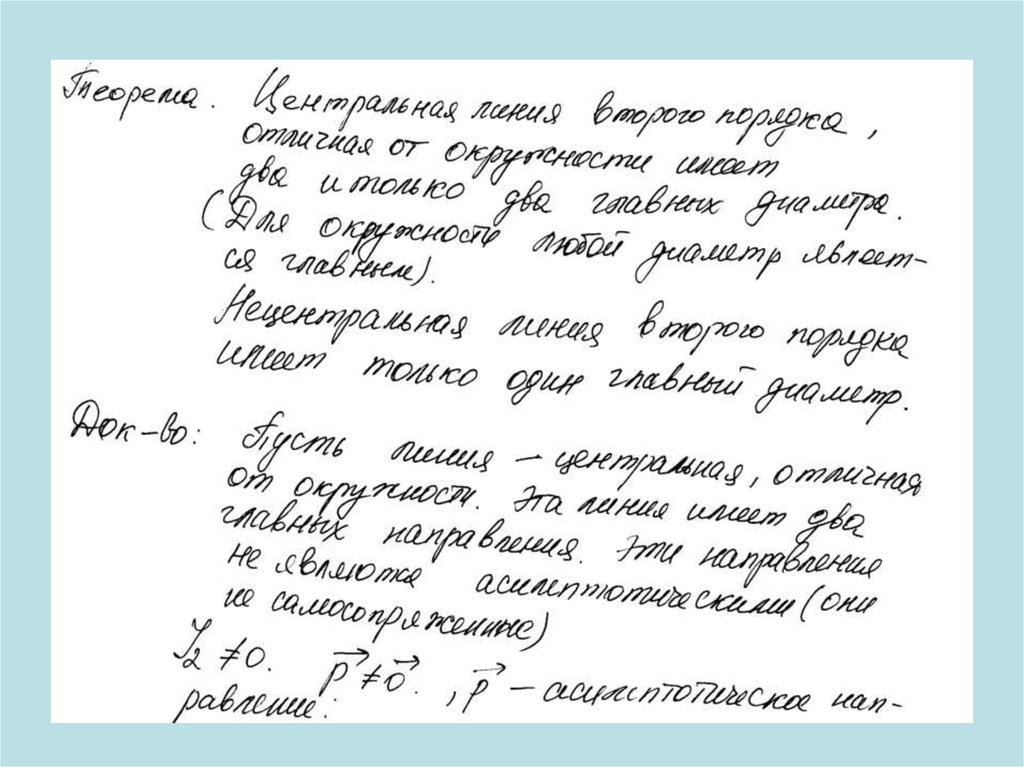 Теорема. Центральная линия второго порядка,
отличная от окружности имеет
два и только два главных диаметра.
(Для окружности любой диаметр являет-
ся главным).
Нецентральная линия второго порядка
имеет только один главный диаметр.
Док-во: Пусть линия – центральная, отличная
от окружности. Эта линия имеет два
главных направления. Эти направления
не являются асимптотическими (они
не самосопряженные)
I₂ ≠ 0. p⃗ ≠ 0⃗. , p⃗ – асимптотическое нап-
равление: